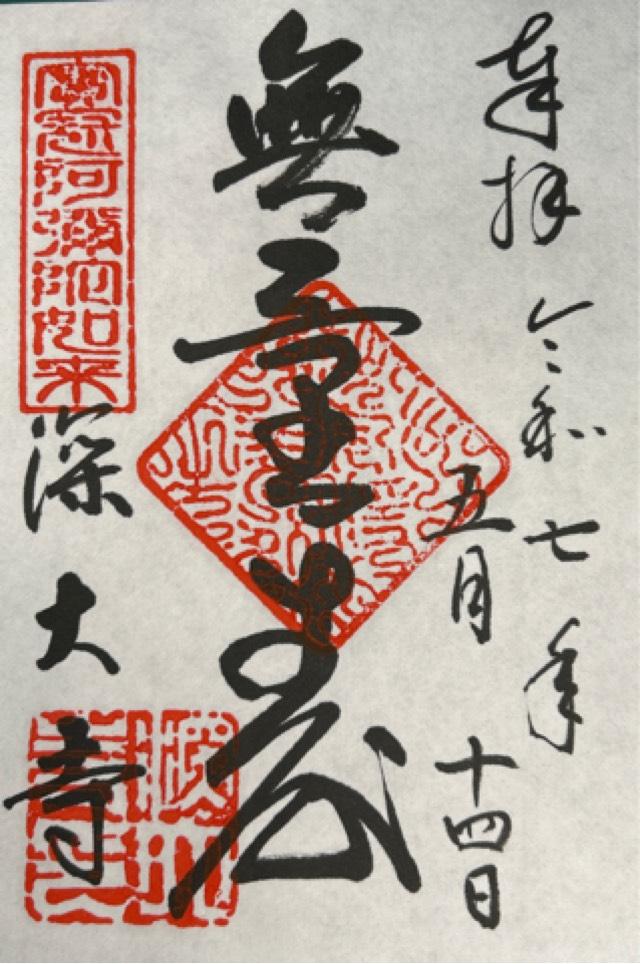 奉拝
令和七年
五月十四日
無量寿
宝冠阿弥陀如来
深大寺